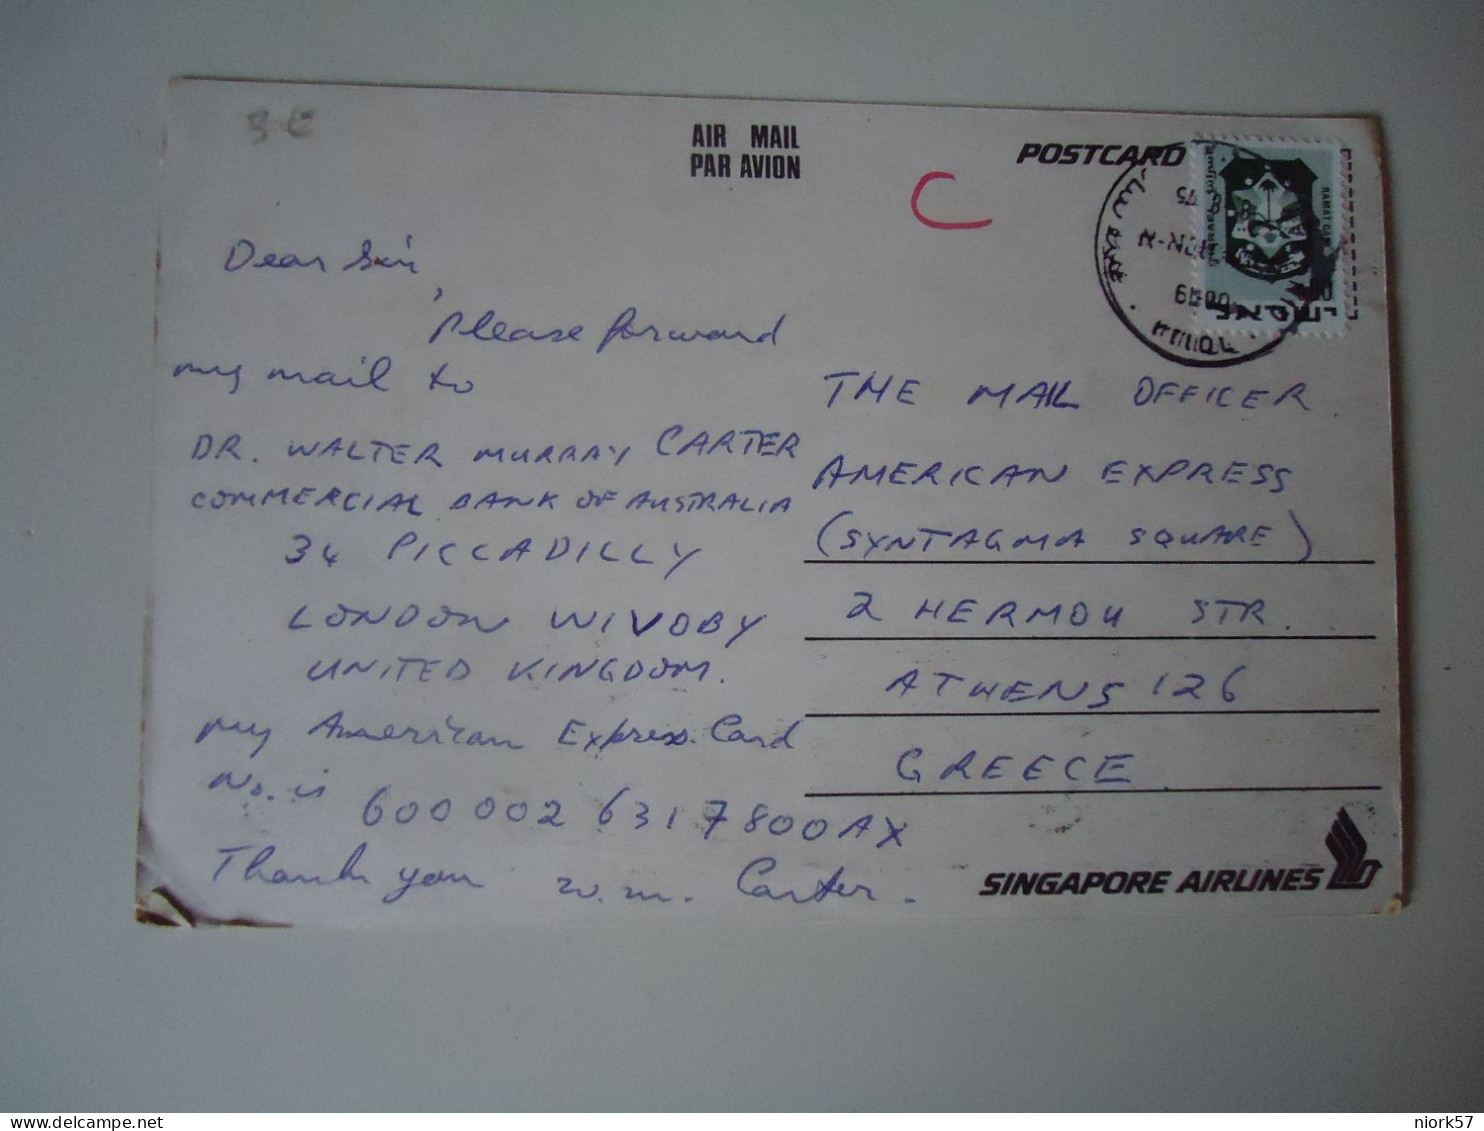 3 €
AIR MAIL
PAR AVION
POSTCARD
C
RAMAT GAN
Dear Sir,
Please forward
my mail to
DR. WALTER MURRAY CARTER
COMMERCIAL BANK OF AUSTRALIA
34 PICCADILLY
LONDON WIVOBY
UNITED KINGDOM.
my American Express Card
No. is 600 002 6317800AX
Thank you w.m. Carter.
THE MAIL OFFICER.
AMERICAN EXPRESS
(SYNTAGMA SQUARE)
2 HERMOU STR.
ATHENS 126
GREECE
SINGAPORE AIRLINES
niork57